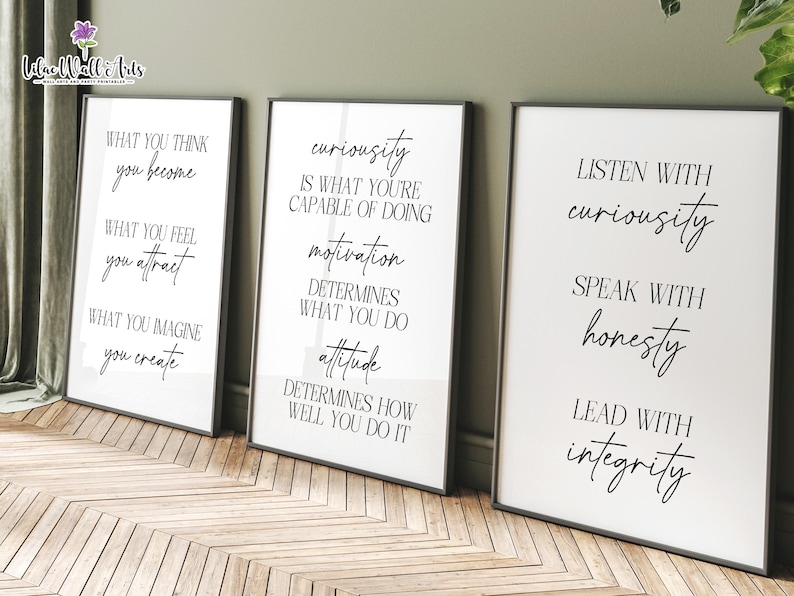 Lilac Wall Arts
WALL ARTS AND PARTY PRINTABLES
WHAT YOU THINK
you become
WHAT YOU FEEL
you attract
WHAT YOU IMAGINE
you create
curiousity
IS WHAT YOU'RE
CAPABLE OF DOING
motivation
DETERMINES
WHAT YOU DO
attitude
DETERMINES HOW
WELL YOU DO IT
LISTEN WITH
curiousity
SPEAK WITH
honesty
LEAD WITH
integrity